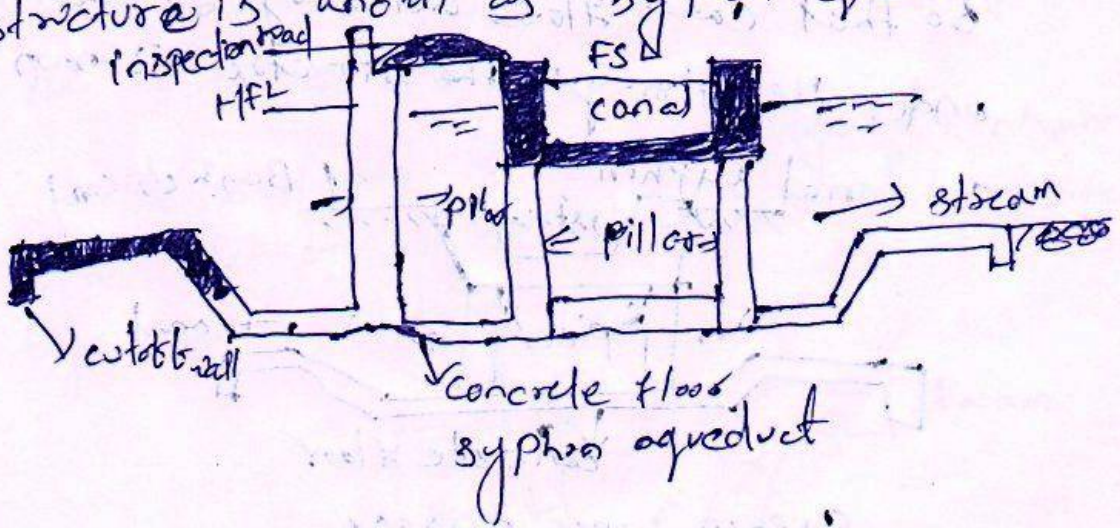 structure is
inspection road
FS
HFL
canal
pillar
pillars
stream
cutoff wall
concrete floor
syphon aqueduct